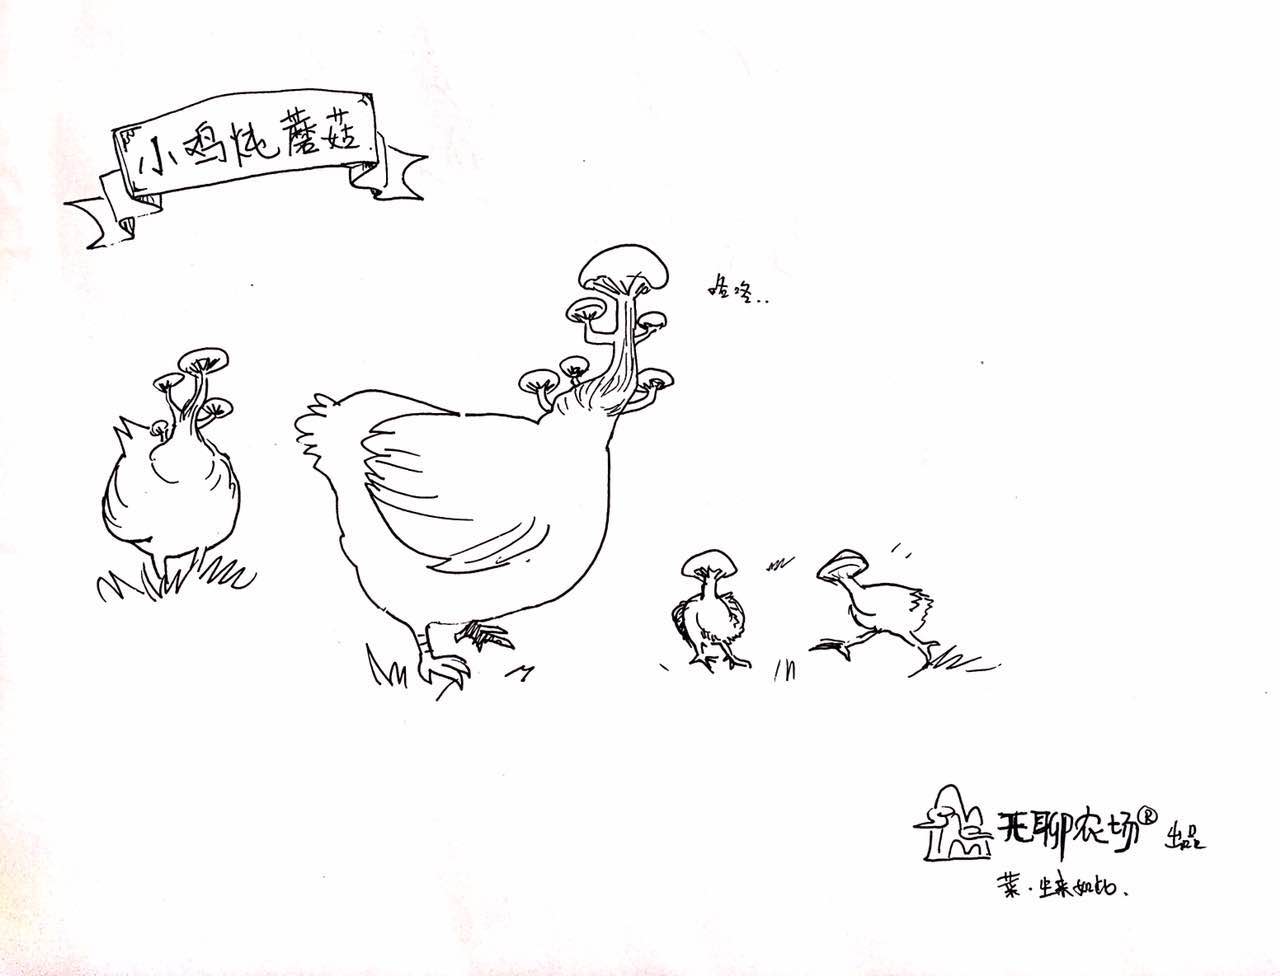 小鸡炖蘑菇
咯咚..
无聊农场® 出品
菜·生来如此.